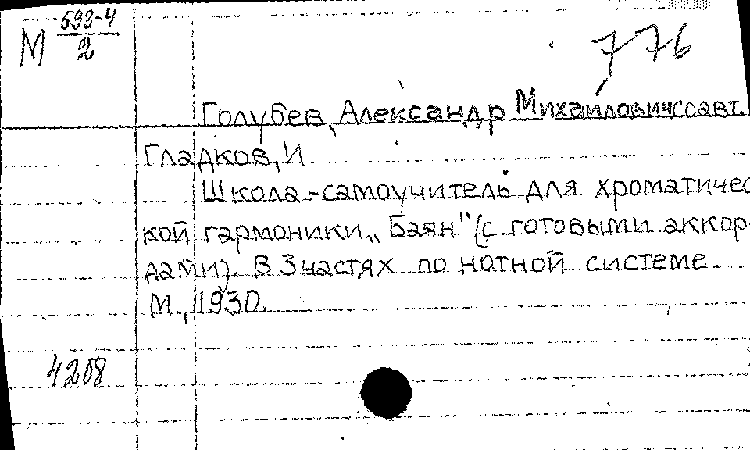 М 593-4/2
776
Голубев, Александр Михайлович соавт.
Гладков, И.
Школа-самоучитель для хроматичес
кой гармоники „Баян" (с готовыми аккор-
дами). В 3 частях по нотной системе.
М., 1930.
4208